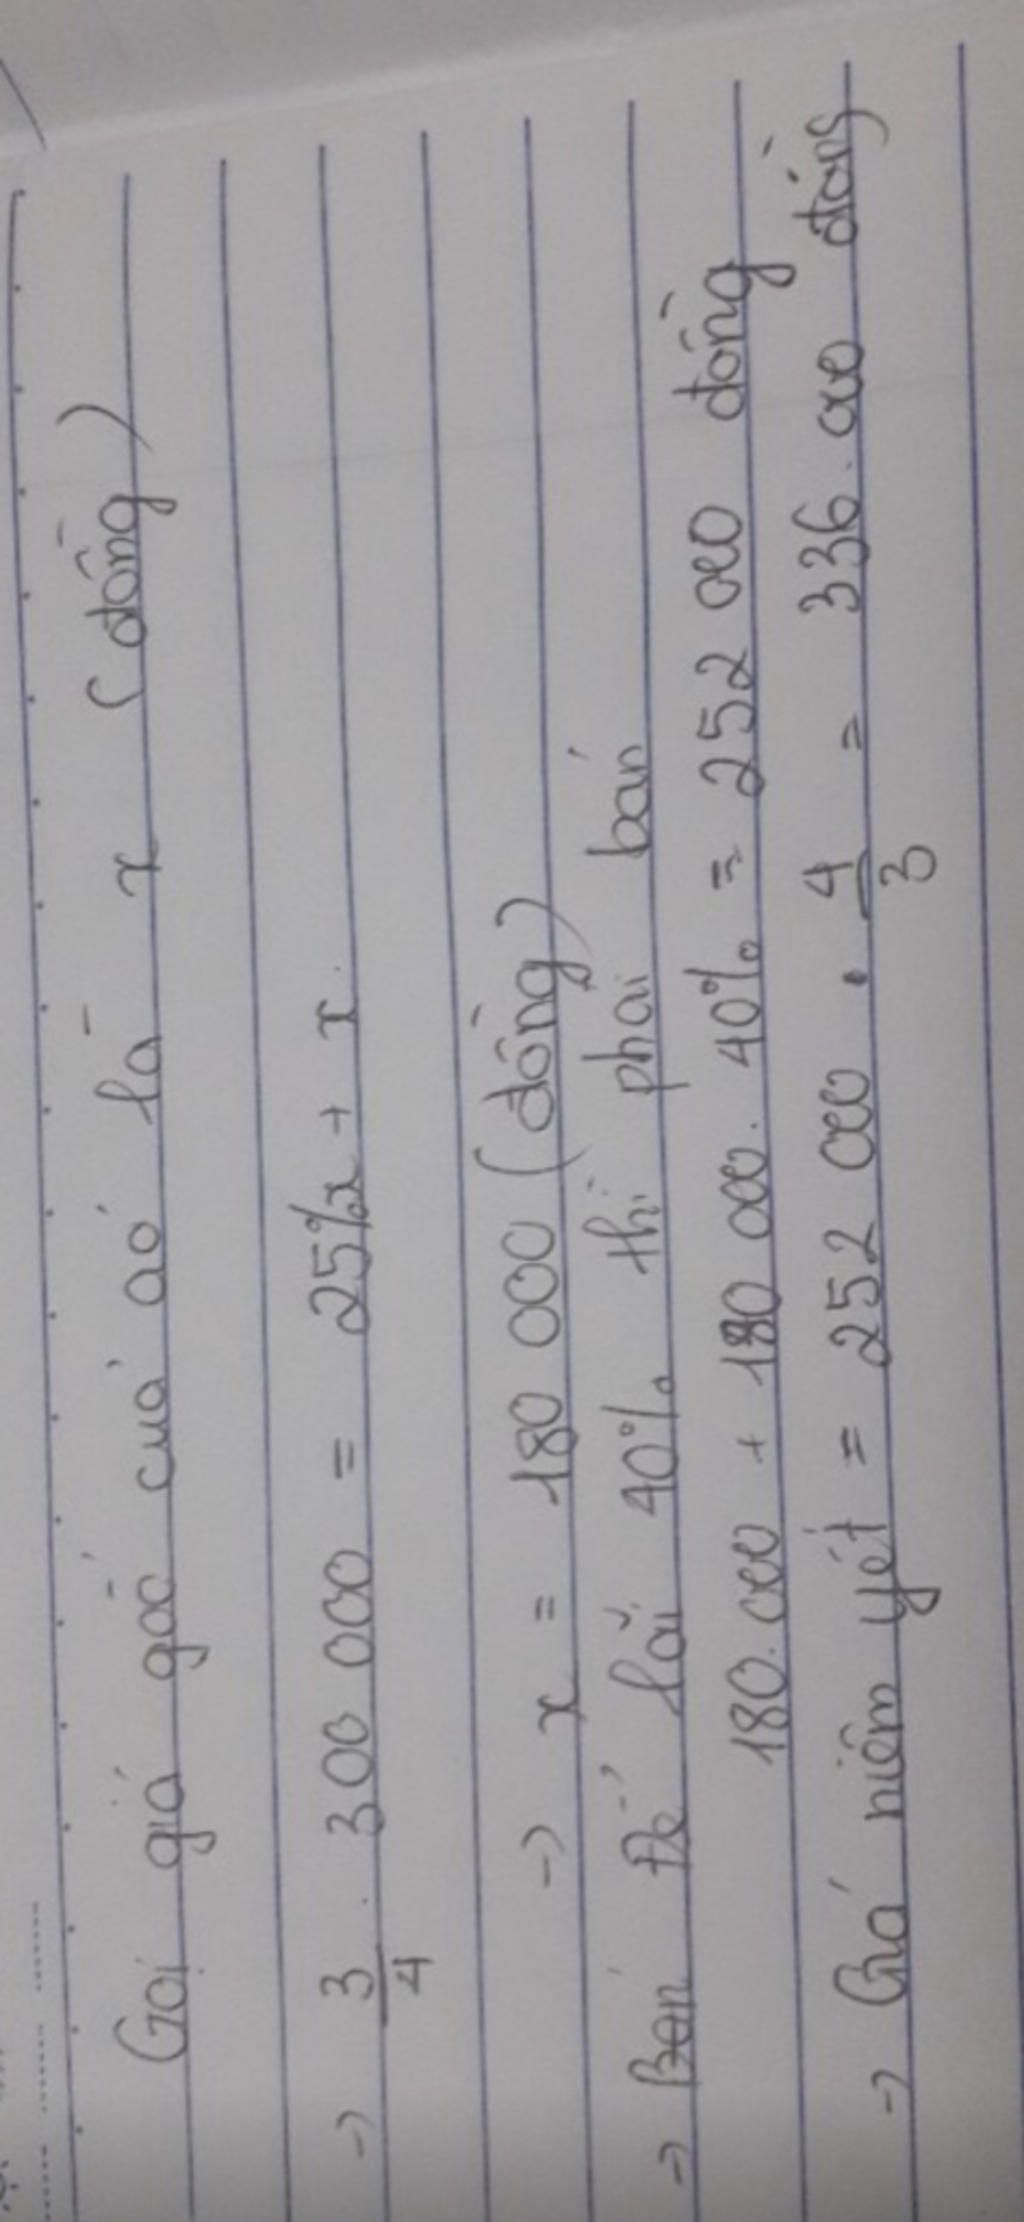 Gọi giá gốc của áo là x (đồng)
→ 3/4 . 300 000 = 25%x + x
→ x = 180 000 (đồng)
→ Bán Để lãi 40% thì phải bán
180.000 + 180 000. 40% = 252 000 đồng
→ Giá niêm yết = 252 000 . 4/3 = 336.000 đồng